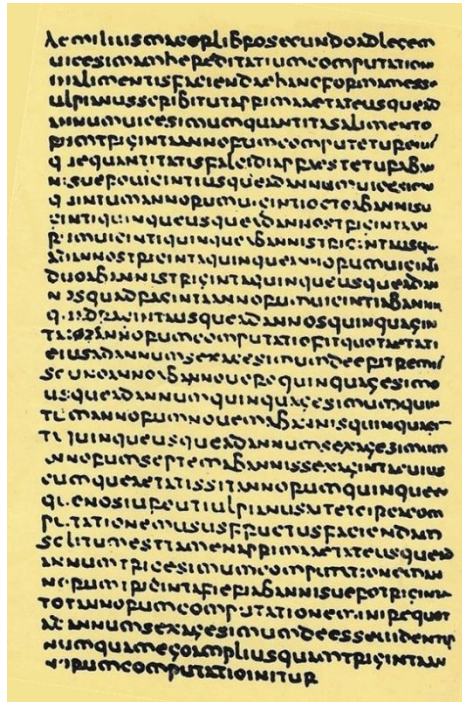 Aemiliusmacerlibrosecundoadlegem
uicesimamhereditatiumcomputationi
inalimentisfaciendaehancformamesse
ulpianusscribitutaprimaaetateusquead
annumuicesimumquantitasalimento
rumtrigintaannorumcomputetureius
quequantitatisfalcidiapraesteturaban
nisuerouigintiusqueadannumuicesim
quintumannorumuigintioctoabannisu
igintiquinqueusqueadannostrigintaan
norumuigintiquinqueabannistrigintausqu
adannostrigintaquinqueannorumuiginti
duoabannistrigintaquinqueusqueadan
nosquadragintaannorumuigintiabannis
quadragintausqueadannosquinquagin
taannorumcomputatiofitquotaetati
eiusadannumsexagesimumdeeritremis
sounoannoabannoueroquinquagesimo
usqueadannumquinquagesimumquin
tumannorumnouemabannisquinquagin
taquinqueusqueadannumsexagesimum
annorumseptemabannissexagintacuius
cumqueaetatissitannorumquinqueeo
quenosiureutiulpianusaitetcircacom
putationemususfructusfaciendam
solitumesttamenaprimaaetateusquead
annumtricesimumcomputationeman
norumtrigintafieriabannisuerotriginta
totannorumcomputationeminirequot
adannumsexagesimumdeesseuidentur
numquamergoampliusquamtrigintaan
norumcomputatioinitur